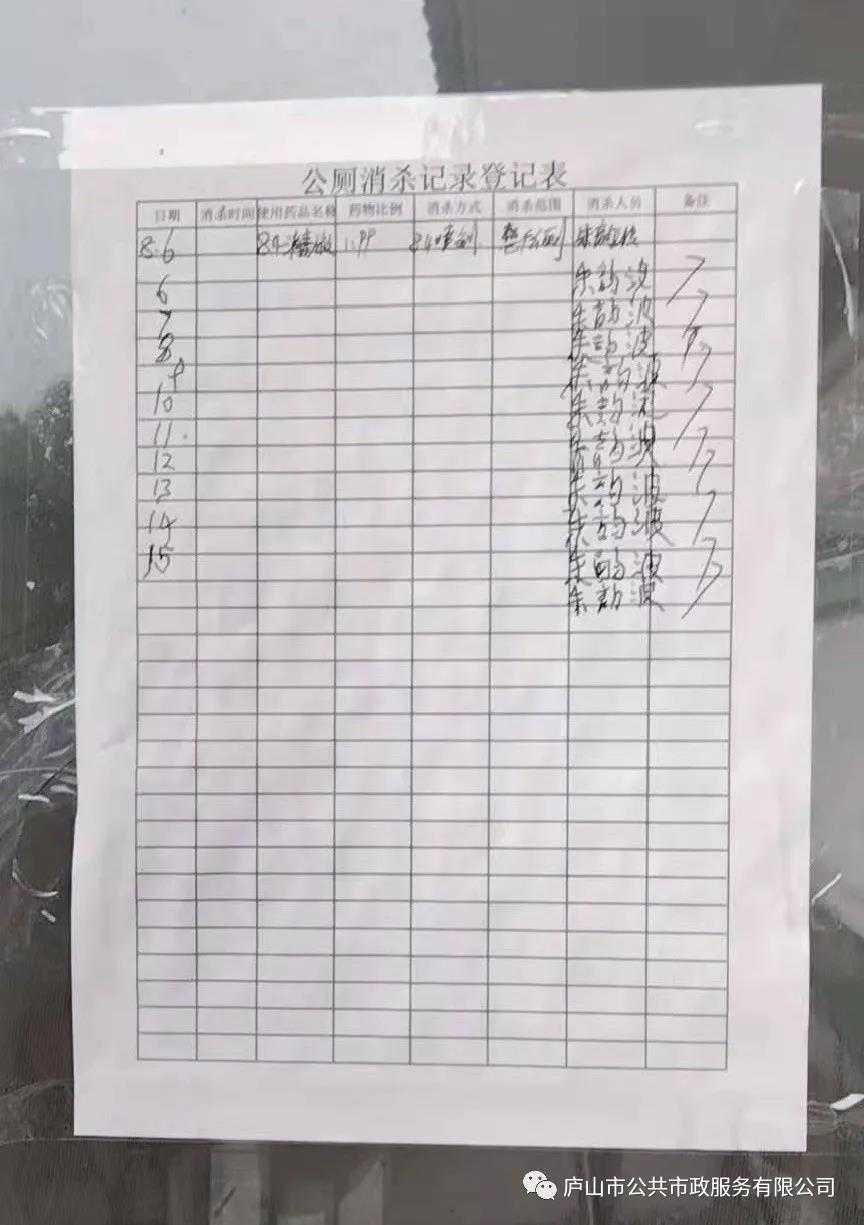 公厕消杀记录登记表
日期 消杀时间 使用药品名称 药物比例 消杀方式 消杀范围 消杀人员 备注
8.6 84 1:99 84喷剂
6 朱韵波
7 朱韵波
8 朱韵波
9 朱韵波
10 朱韵波
11. 朱韵波
12 朱韵波
13 朱韵波
14 朱韵波
15 朱韵波
庐山市公共市政服务有限公司